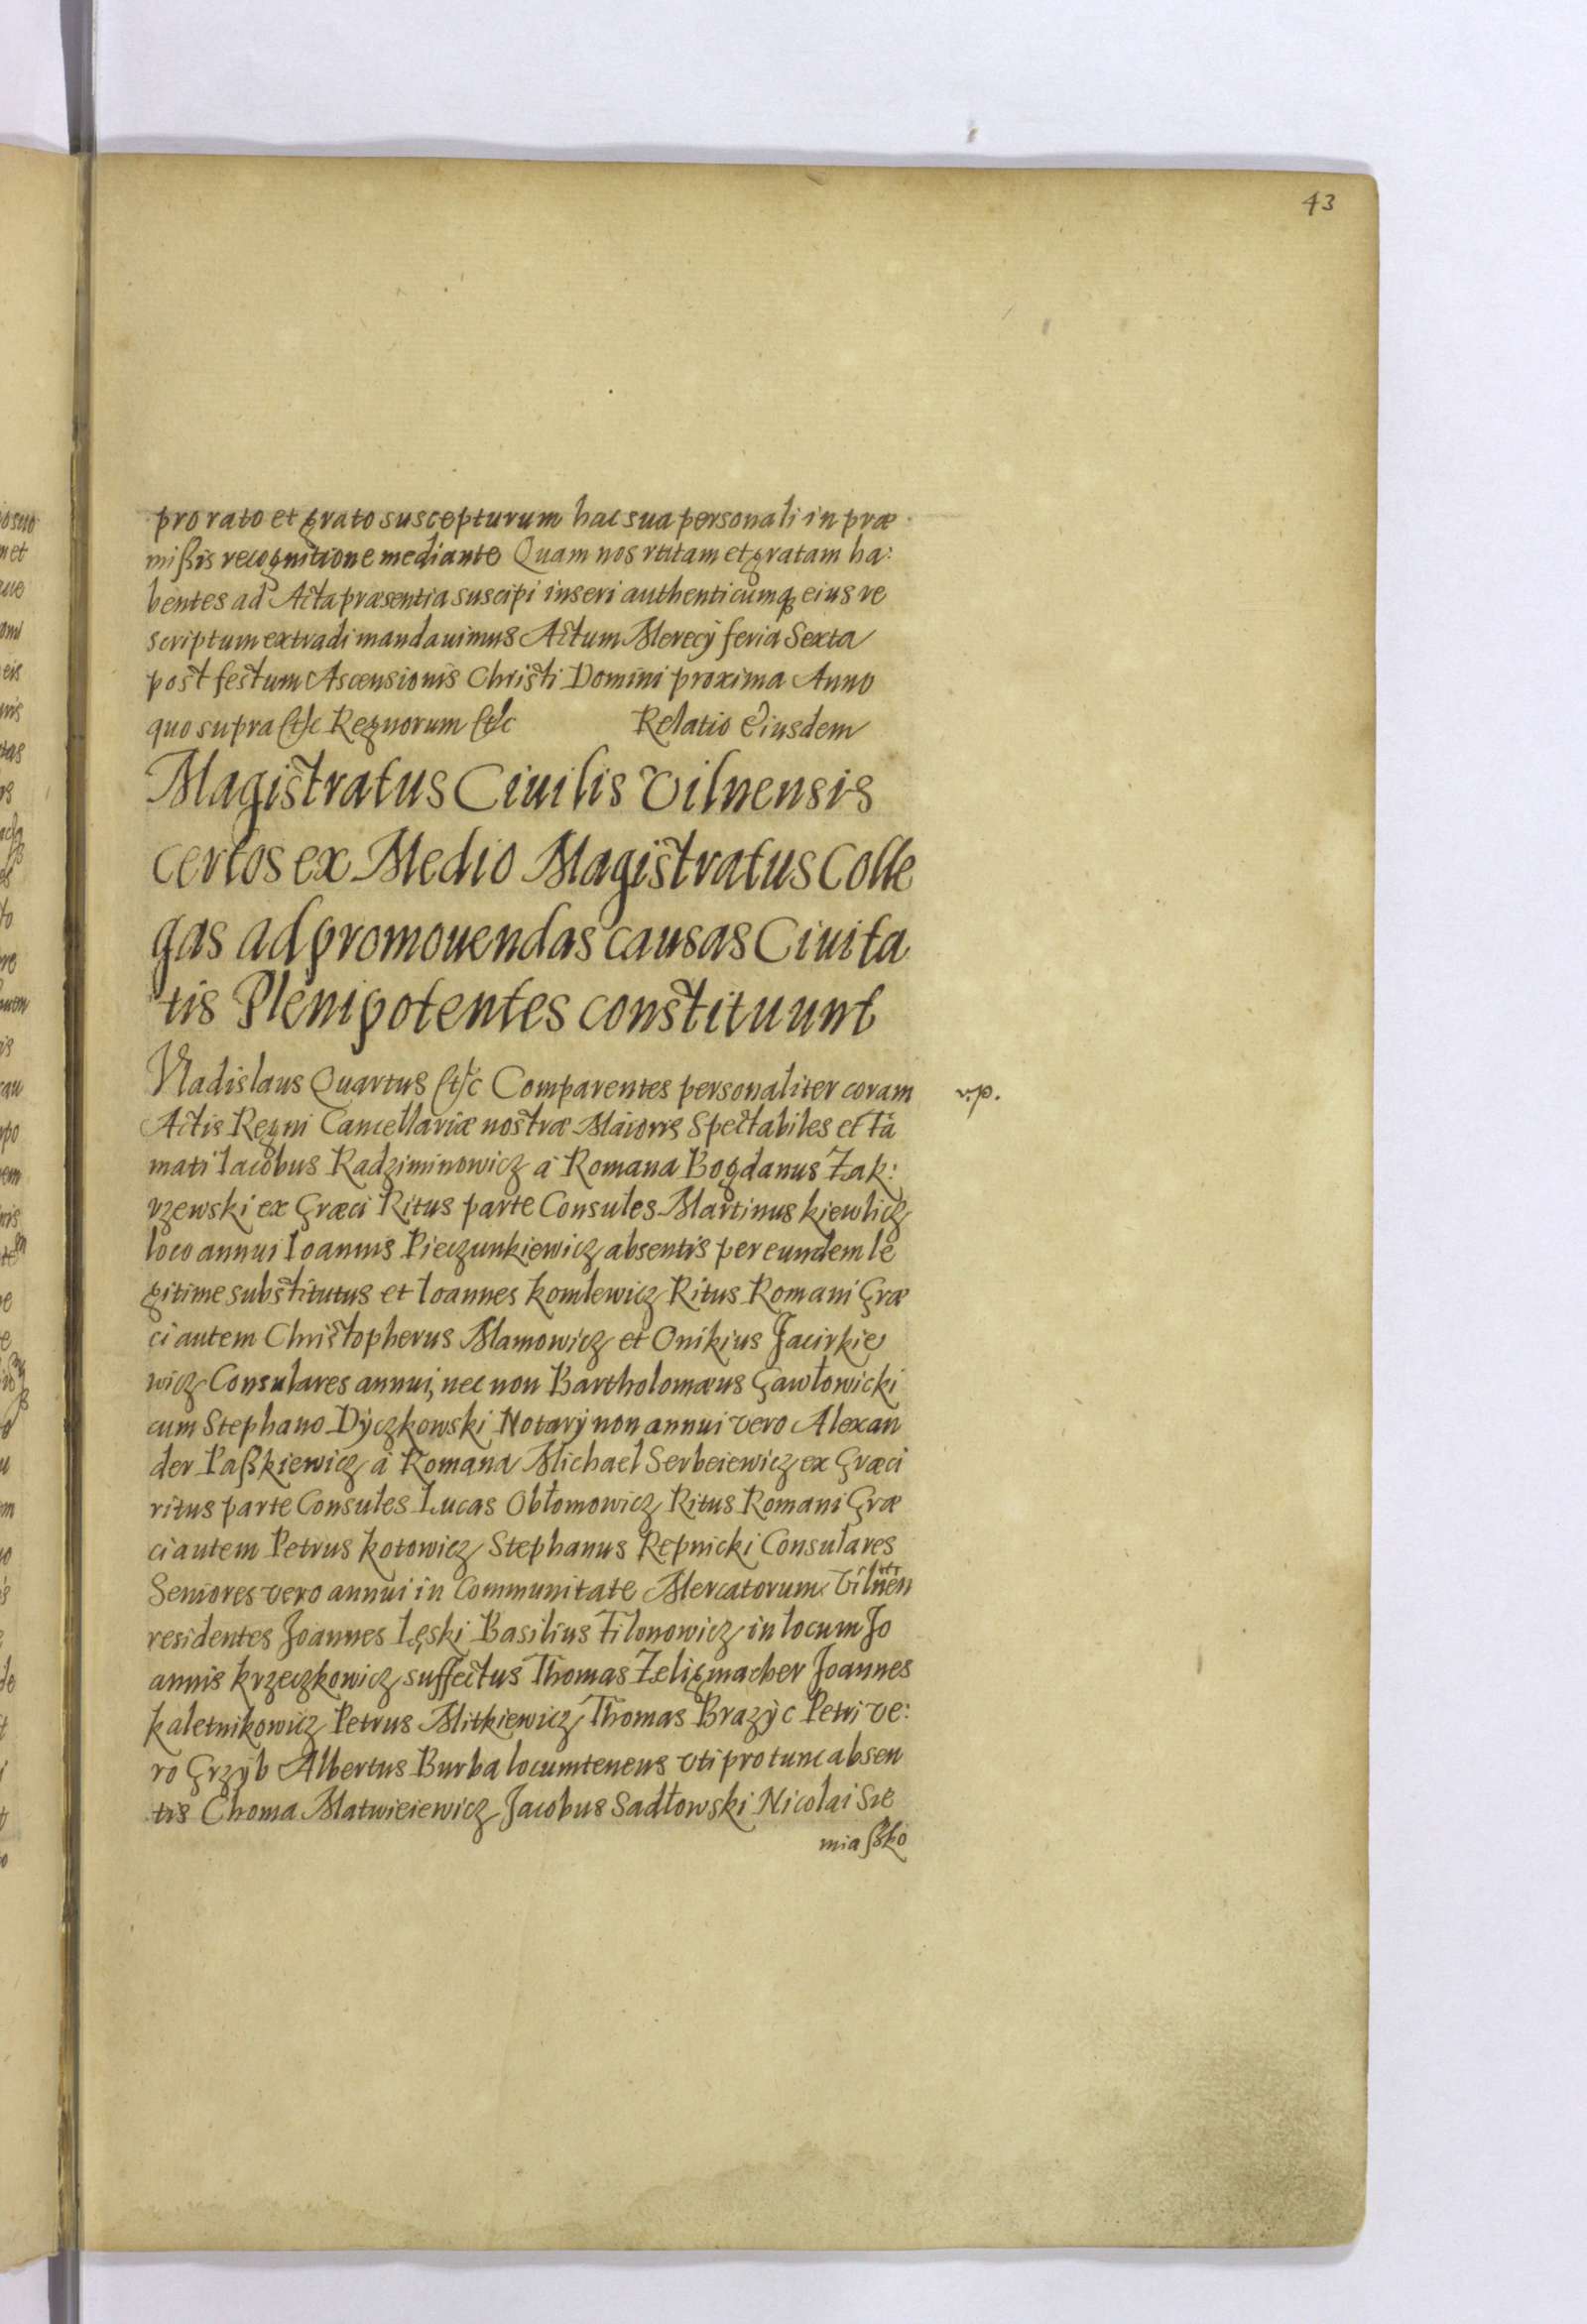 43
pro rato et grato suscepturum hac sua personali in præ
mißis recognitione mediante Quam nos ratam et gratam ha:
bentes ad Acta præsentia suscipi inseri authenticumq eius re
scriptum extradi mandauimus Actum Merecÿ feria Sexta
post festum Ascensionis Christi Domini proxima Anno
quo supra &c Regnorum &c Relatio Eiusdem
Magistratus Ciuilis Vilnensis
certos ex Medio Magistratus Colle
gas ad promouendas causas Ciuita
tis Plenipotentes constituunt
Vladislaus Quartus &c Comparentes personaliter coram v.p.
Actis Regni Cancellariæ nostræ Maioris Spectabiles et fa
mati Iacobus Radziminowicz a Romana Bogdanus Zak:
rzewski ex Græci Ritus parte Consules Martinus kiewlicz
loco annui Ioannis Pieczunkiewicz absentis per eundem le
gitime substitutus et Ioannes komlewicz Ritus Romani Græ
ci autem Christopherus Mamowicz et Onikius Jacirkie
wicz Consulares annui, nec non Bartholomæus Gawłowicki
cum Stephano Dÿczkowski Notarÿ non annui vero Alexan
der Paßkiewicz à Romana Michael Serbeiewicz ex Græci
ritus parte Consules Lucas Obłomowicz Ritus Romani Græ
ci autem Petrus kotowicz Stephanus Repnicki Consulares
Seniores vero annui in Communitate Mercatorum Vilnen
residentes Joannes Lęski Basilius Filonowicz in locum Jo
annis krzeczkowicz suffectus Thomas Zeligmacher Joannes
kaletnikowicz Petrus Mitkiewicz Thomas Brazÿc Petri ve:
ro Grzÿb Albertus Burba locumtenens vti pro tunc absen
tis Choma Matwieiewicz Jacobus Sadłowski Nicolai Sie
miaßko